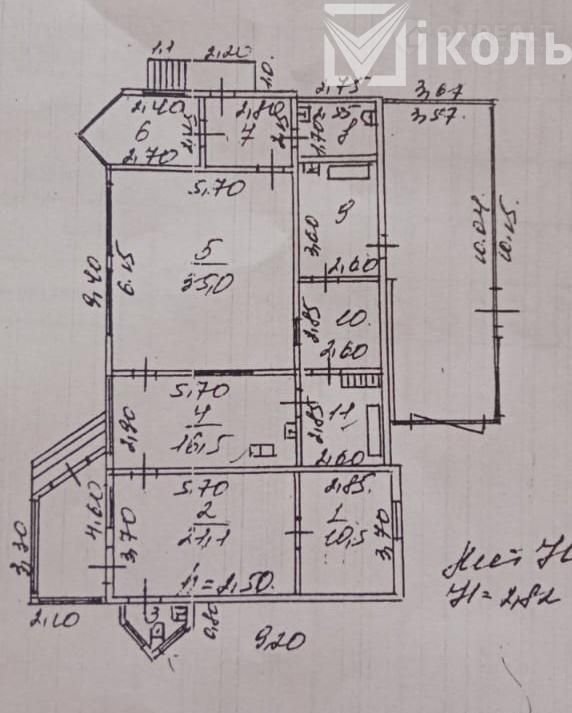 ІКОЛЬ
1,1
2,20
1,0
2,75
3,67
3,57
2,40
6
2,15
2,70
2,80
7
2,15
1,70
8
5,70
9
3,60
2,60
10.04
10.15
9,40
6.15
5
35,0
2,85
10.
2,60
5,70
2,90
4
16,5
2,85
11
2,60
3,30
4,60
5,70
2
21,1
3,70
2,85.
1
10,5
3,70
H=2,50.
2,10
3
0,80
9,20
H=2,82